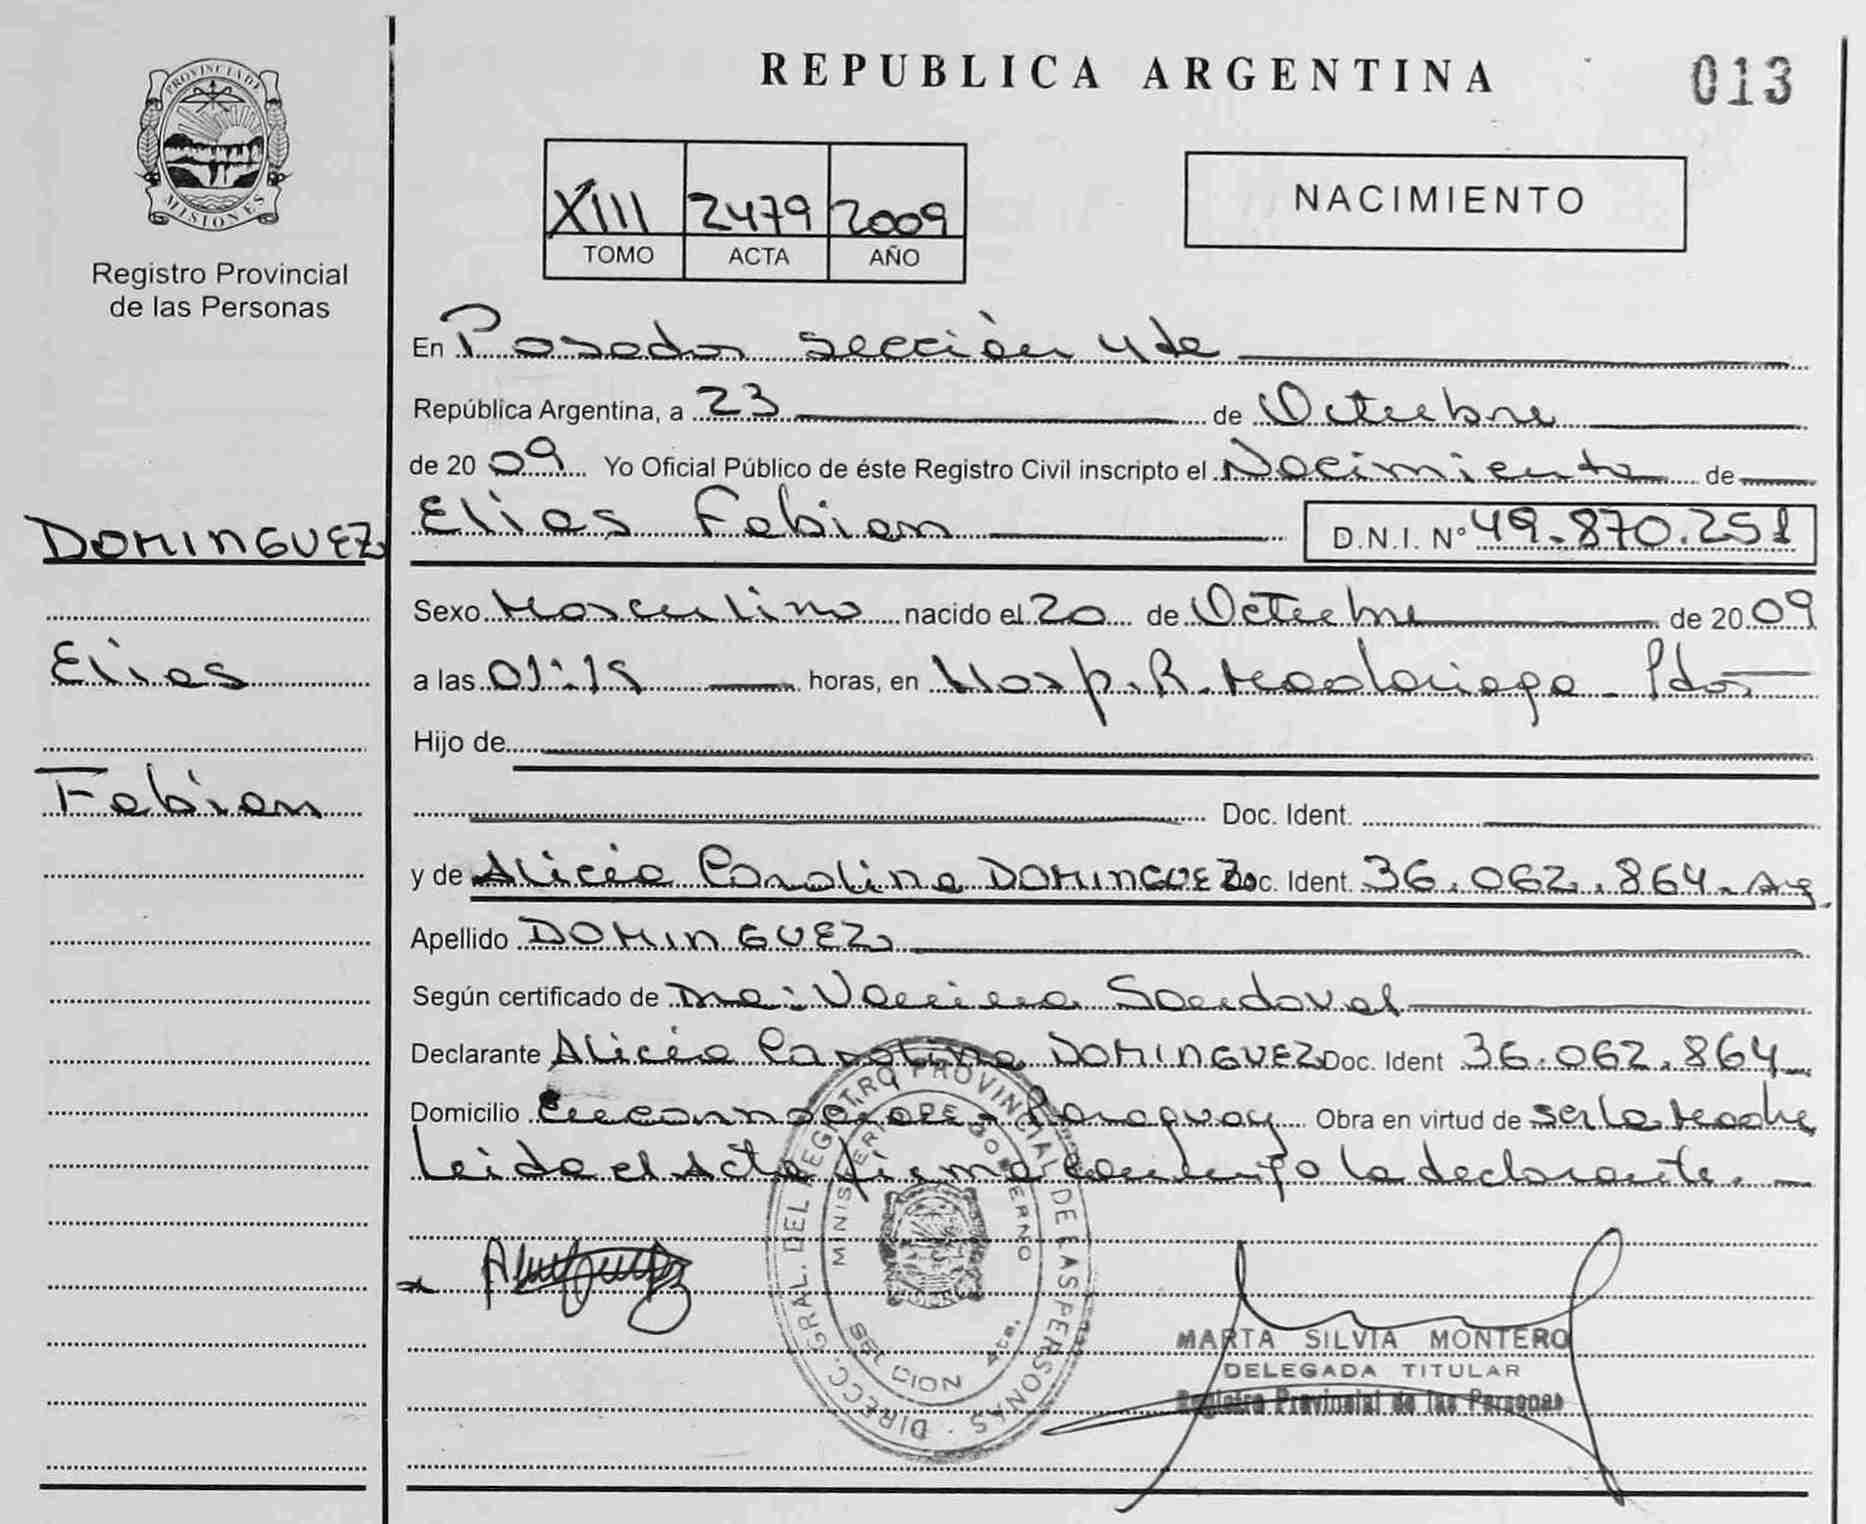 REPUBLICA ARGENTINA
013
PROVINCIA DE MISIONES
Registro Provincial
de las Personas
XIII 2479 2009
TOMO ACTA AÑO
NACIMIENTO
En Posadas sección 4ta
República Argentina, a 23 de Octubre
de 20 09 Yo Oficial Público de éste Registro Civil inscripto el Nacimiento de
DOMINGUEZ
Elias
Fabian
Elias Fabian D.N.I. Nº 49.870.251
Sexo Masculino nacido el 20 de Octubre de 20 09
a las 01:15 horas, en Hosp. R. Madariaga - Pdas
Hijo de
Doc. Ident.
y de Alicia Carolina DOMINGUEZ Doc. Ident. 36.062.864 - Arg.
Apellido DOMINGUEZ
Según certificado de Dra: Vanina Sandoval
Declarante Alicia Carolina DOMINGUEZ Doc. Ident 36.062.864
Domicilio Encarnación - Paraguay Obra en virtud de ser la Madre
Leida el Acta firma conmigo la declarante.
DIRECC. GRAL. DEL REGISTRO PROVINCIAL DE LAS PERSONAS
MINISTERIO DE GOBIERNO
MARTA SILVIA MONTERO
DELEGADA TITULAR
Registro Provincial de las Personas